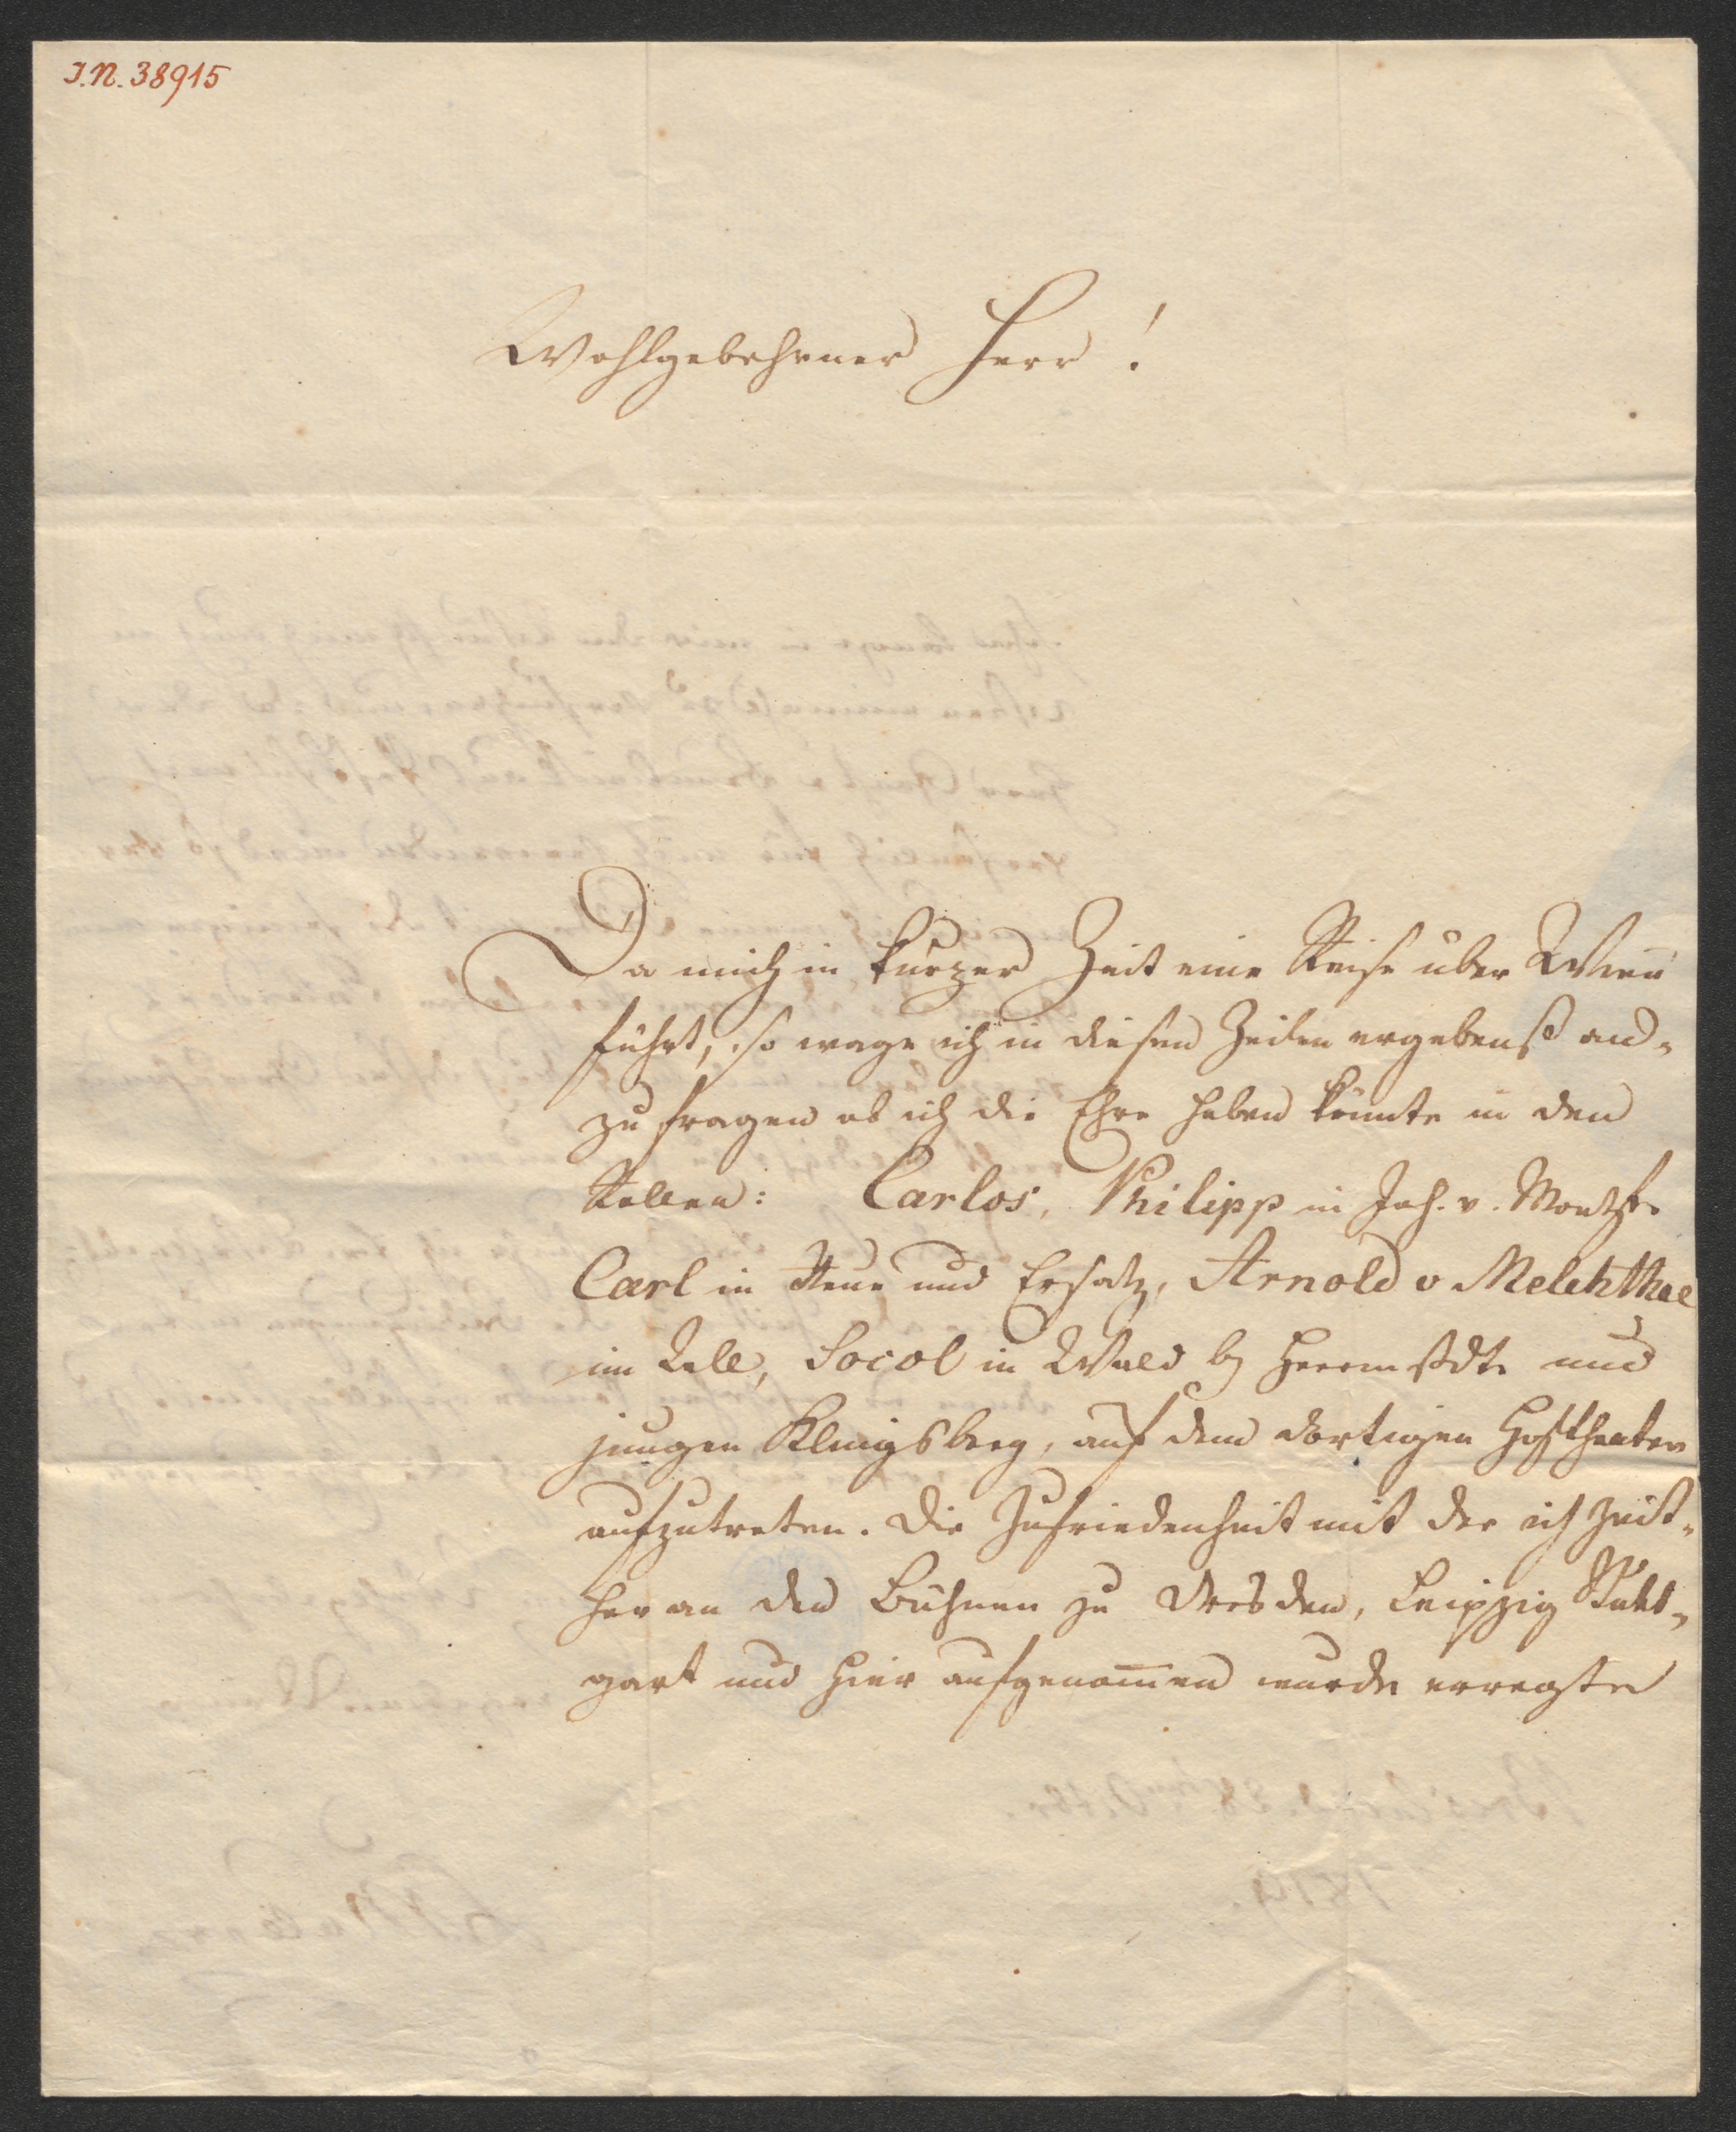 I.N. 38915
Wohlgebohrner Herr!
Da mich in kurzer Zeit eine Reise über Wien
führt, so wage ich in diesen Zeilen ergebenst an„
zu fragen ob ich die Ehre haben könnte in den
Rollen: Carlos, Philipp in Joh. v. Montf:
Carl in Reue und Ersatz, Arnold v Melchthal
im Tell, Socol in Wald by Herrmstdt. und
jungen Klingsberg, auf dem dortigen Hoftheater
aufzutreten. Die Zufriedenheit mit der ich zeit„
her an den Bühnen zu Dresden, Leipzig Stutt„
gart und hier aufgenom̄en wurde erregte